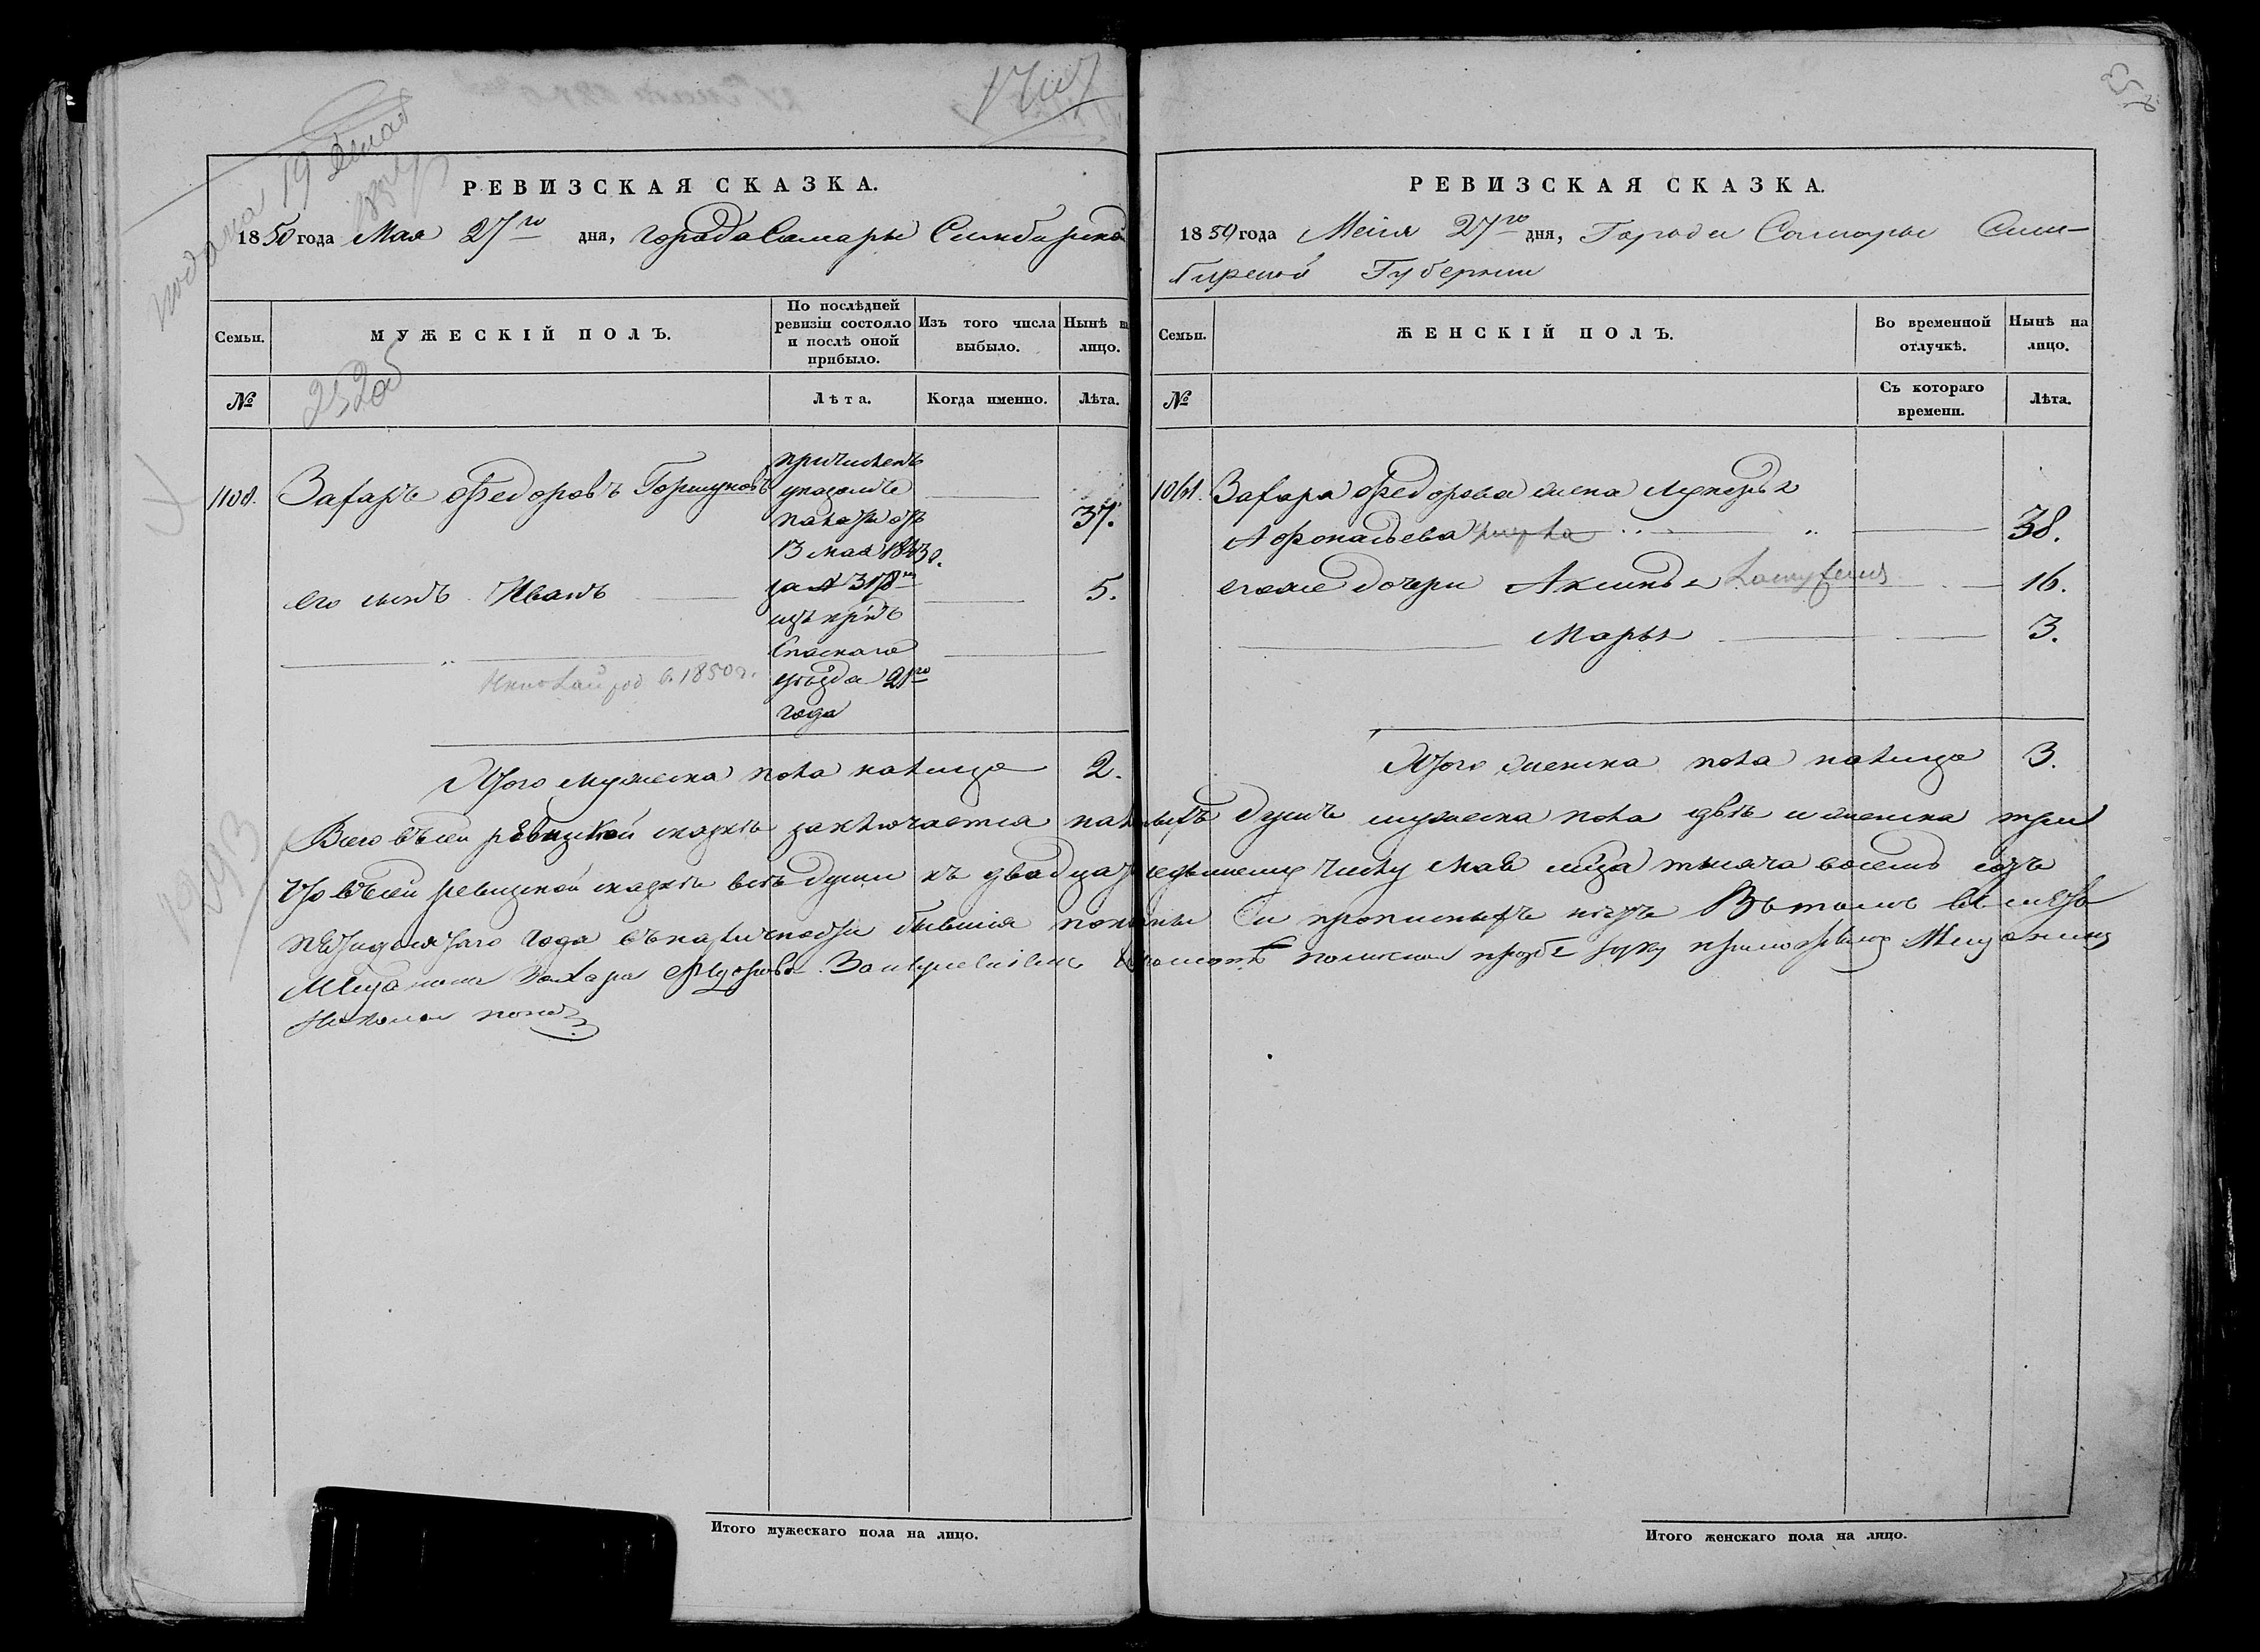 подана 19 Июля
РЕВИЗСКАЯ СКАЗКА.
1850 года Мая 27го дня, города Самары Симбирской
Семьи.
МУЖЕСКІЙ ПОЛЪ.
По послѣдней ревизіи состояло и послѣ оной прибыло.
Изъ того числа выбыло.
Нынѣ на лицо.
№
Лѣта.
Когда именно.
Лѣта.
Захаръ Федоровъ Горшуновъ
37.
причисленъ
указомъ
палаты отъ
13 мая
за № 3178м
изъ
Спаскаго
уѣзда 21го
года
его сынъ Иванъ
5.
Николай род в 1850 г.
Итого мужеска пола налицо 2.
РЕВИЗСКАЯ СКАЗКА.
1850 года Маія 27го дня, Города Самары Сим-
бирской Губернии
Семьи.
ЖЕНСКІЙ ПОЛЪ.
Во временной отлучкѣ.
Нынѣ на лицо.
№
Съ котораго времени.
Лѣта.
1061. Захара Федорова жена Лукерья
Афонасьева умерла 38.
его же дочери Аксинья замужем 16.
Марья 3.
Итого женска пола налицо 3.
Всего въ сей ревизкой сказкѣ заключается наличныхъ душъ мужеска пола двѣ и женска три
Что въ сей ревизской сказкѣ всѣ души къ двадцать седьмому числу мая мѣсяца тысяча восемь сотъ
пятидесятаго года въ наличности бывшія показаны и прописныхъ нѣтъ Въ томъ
Мещанина Захара Федорова За неумениемъ грамотѣ поличной прозбѣ руку приложилъ Мещанинъ
Николай
Итого мужескаго пола на лицо.
Итого женскаго пола на лицо.